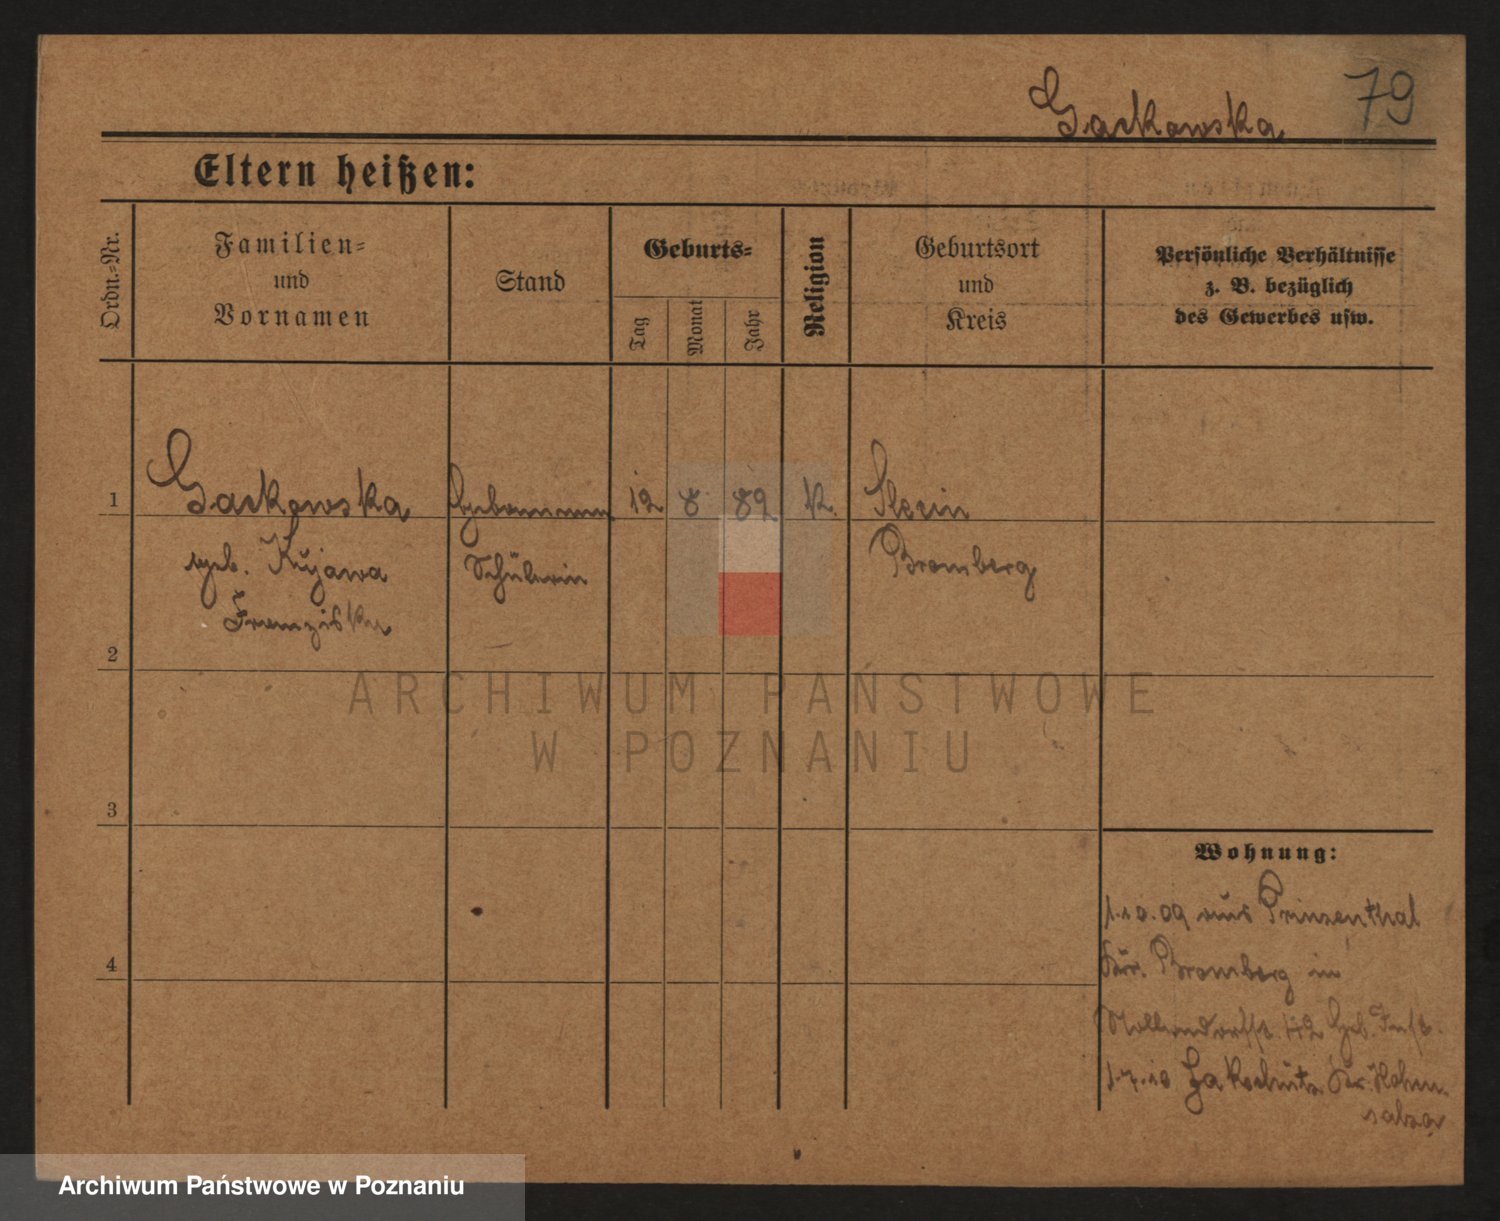 Gackowska 79
Eltern heißen:
Ordn.-Nr.
Familien-
und
Vornamen
Stand
Geburts-
Tag
Monat
Jahr
Religion
Geburtsort
und
Kreis
Persönliche Verhältnisse
z. B. bezüglich
des Gewerbes usw.
1 Gackowska 12 8 89 K.
geb. Kujawa Schülerin Bromberg
Franziska
2
ARCHIWUM PAŃSTWOWE
W POZNANIU
3
Wohnung:
1.10.09 aus Prinzenthal
4
Kr. Bromberg in
42
1.7.10 Kr. Hohen-
salza
Archiwum Państwowe w Poznaniu